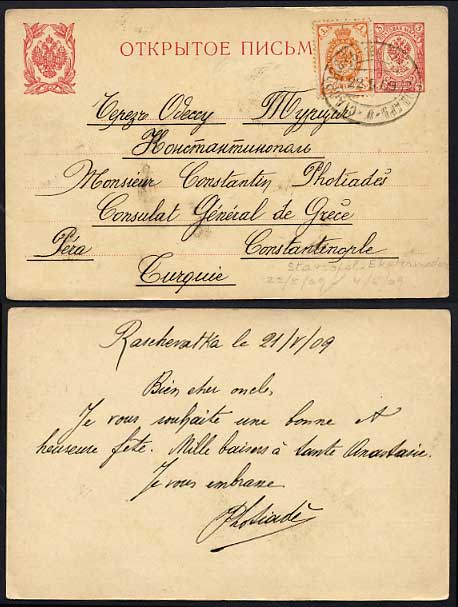 ОТКРЫТОЕ ПИСЬМО
Черезъ Одессу Турція
Константинополь
Monsieur Constantin Photiadès
Consulat Général de Grèce
Péra Constantinople
Turquie
Stavropol - Ekaterinodar
22/5/09 4/6/09
Raschevatka le 21/V/09
Bien cher oncle,
Je vous souhaite une bonne et
heureuse fête. Mille baisers à tante Anastasie.
Je vous embrasse
Photiadè